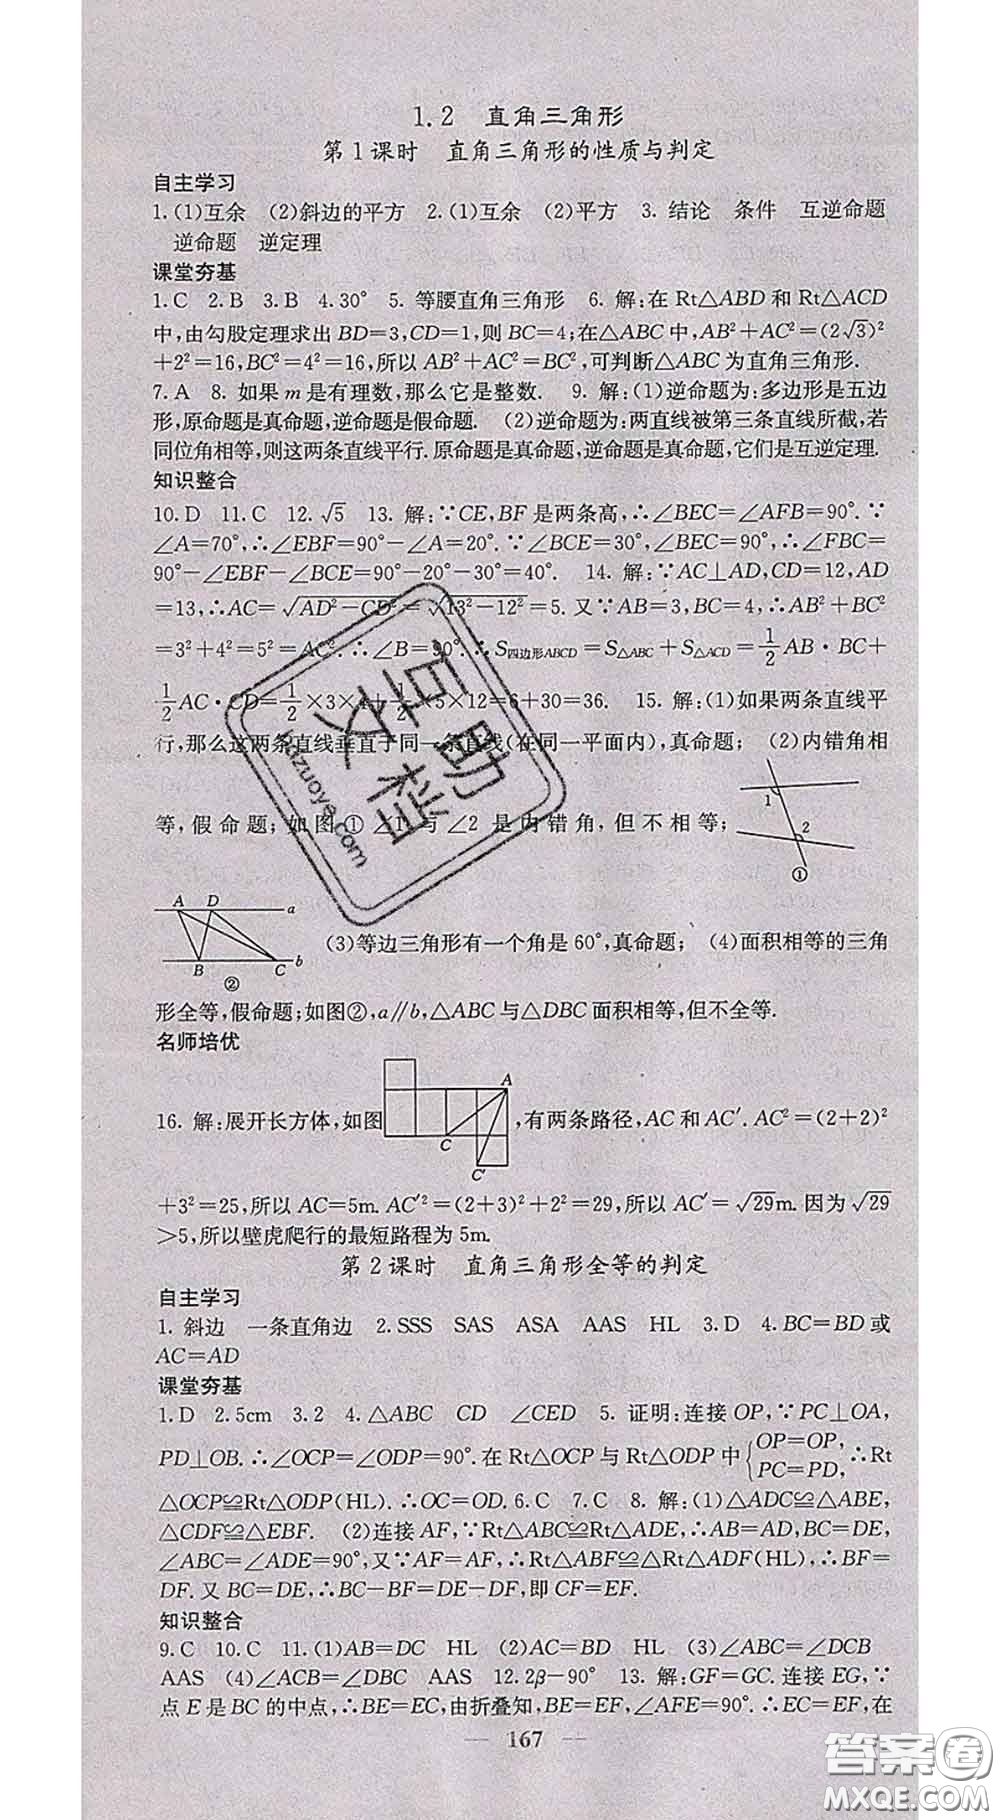 1.2 直角三角形
第1课时 直角三角形的性质与判定
自主学习
1.(1)互余 (2)斜边的平方 2.(1)互余 (2)平方 3. 结论 条件 互逆命题
逆命题 逆定理
课堂夯基
1.C 2.B 3.B 4.30° 5. 等腰直角三角形 6. 解:在Rt△ABD和Rt△ACD
中,由勾股定理求出BD=3,CD=1,则BC=4;在△ABC中,AB²+AC²=(2√3)²
+2²=16,BC²=4²=16,所以AB²+AC²=BC²,可判断△ABC为直角三角形.
7.A 8. 如果m是有理数,那么它是整数. 9. 解:(1)逆命题为:多边形是五边
形,原命题是真命题,逆命题是假命题. (2)逆命题为:两直线被第三条直线所截,若
同位角相等,则这两条直线平行.原命题是真命题,逆命题是真命题,它们是互逆定理.
知识整合
10.D 11.C 12.√5 13. 解:∵CE,BF是两条高,∴∠BEC=∠AFB=90°.∵
∠A=70°,∴∠EBF=90°-∠A=20°.∵∠BCE=30°,∠BEC=90°,∴∠FBC=
90°-∠EBF-∠BCE=90°-20°-30°=40°. 14. 解:∵AC⊥AD,CD=12,AD
=13,∴AC=√AD²-CD²=√13²-12²=5.又∵AB=3,BC=4,∴AB²+BC²
=3²+4²=5²=AC².∴∠B=90°.∴S四边形ABCD=S△ABC+S△ACD=1/2 AB·BC+
1/2 AC·CD=1/2×3×4+1/2×5×12=6+30=36. 15. 解:(1)如果两条直线平
行,那么这两条直线垂直于同一条直线(在同一平面内),真命题; (2)内错角相
等,假命题;如图①∠1与∠2是内错角,但不相等;
1
2
①
A D a
B C b
②
(3)等边三角形有一个角是60°,真命题; (4)面积相等的三角
形全等,假命题;如图②,a∥b,△ABC与△DBC面积相等,但不全等.
名师培优
A
C
C′
16. 解:展开长方体,如图,有两条路径,AC和AC′.AC²=(2+2)²
+3²=25,所以AC=5m.AC′²=(2+3)²+2²=29,所以AC′=√29m.因为√29
>5,所以壁虎爬行的最短路程为5m.
第2课时 直角三角形全等的判定
自主学习
1. 斜边 一条直角边 2.SSS SAS ASA AAS HL 3.D 4.BC=BD或
AC=AD
课堂夯基
1.D 2.5cm 3.2 4.△ABC CD ∠CED 5. 证明:连接OP,∵PC⊥OA,
PD⊥OB.∴∠OCP=∠ODP=90°.在Rt△OCP与Rt△ODP中{OP=OP, PC=PD,∴Rt
△OCP≌Rt△ODP(HL).∴OC=OD.6.C 7.C 8. 解:(1)△ADC≌△ABE,
△CDF≌△EBF. (2)连接AF,∵Rt△ABC≌Rt△ADE,∴AB=AD,BC=DE,
∠ABC=∠ADE=90°,又∵AF=AF,∴Rt△ABF≌△Rt△ADF(HL),∴BF=
DF.又BC=DE,∴BC-BF=DE-DF,即CF=EF.
知识整合
9.C 10.C 11.(1)AB=DC HL (2)AC=BD HL (3)∠ABC=∠DCB
AAS (4)∠ACB=∠DBC AAS 12.2β-90° 13. 解:GF=GC.连接EG,∵
点E是BC的中点,∴BE=EC,由折叠知,BE=EF,∠AFE=90°.∴EC=EF,在
— 167 —
互助文档
hzuoye.com
答案圈
MXQE.COM